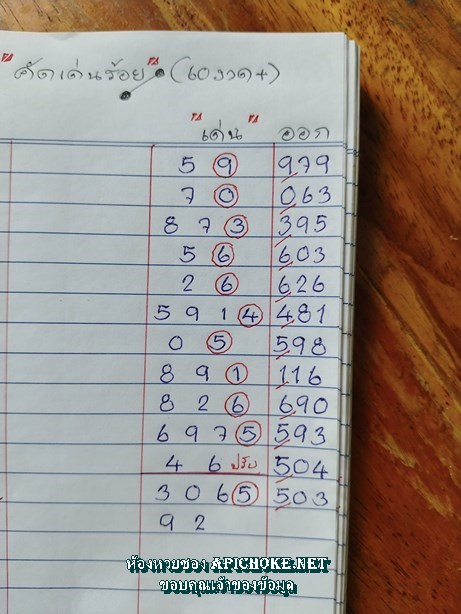 คัดเด่นร้อย (๖๐งวด+)
เด่น ออก
5 9 979
7 0 063
8 7 3 395
5 6 603
2 6 626
5 9 1 4 481
0 5 598
8 9 1 116
8 2 6 690
6 9 7 5 593
4 6 ปรับ 504
3 0 6 5 503
9 2
ห้องหวยซอง APICHOKE.NET
ขอบคุณเจ้าของข้อมูล